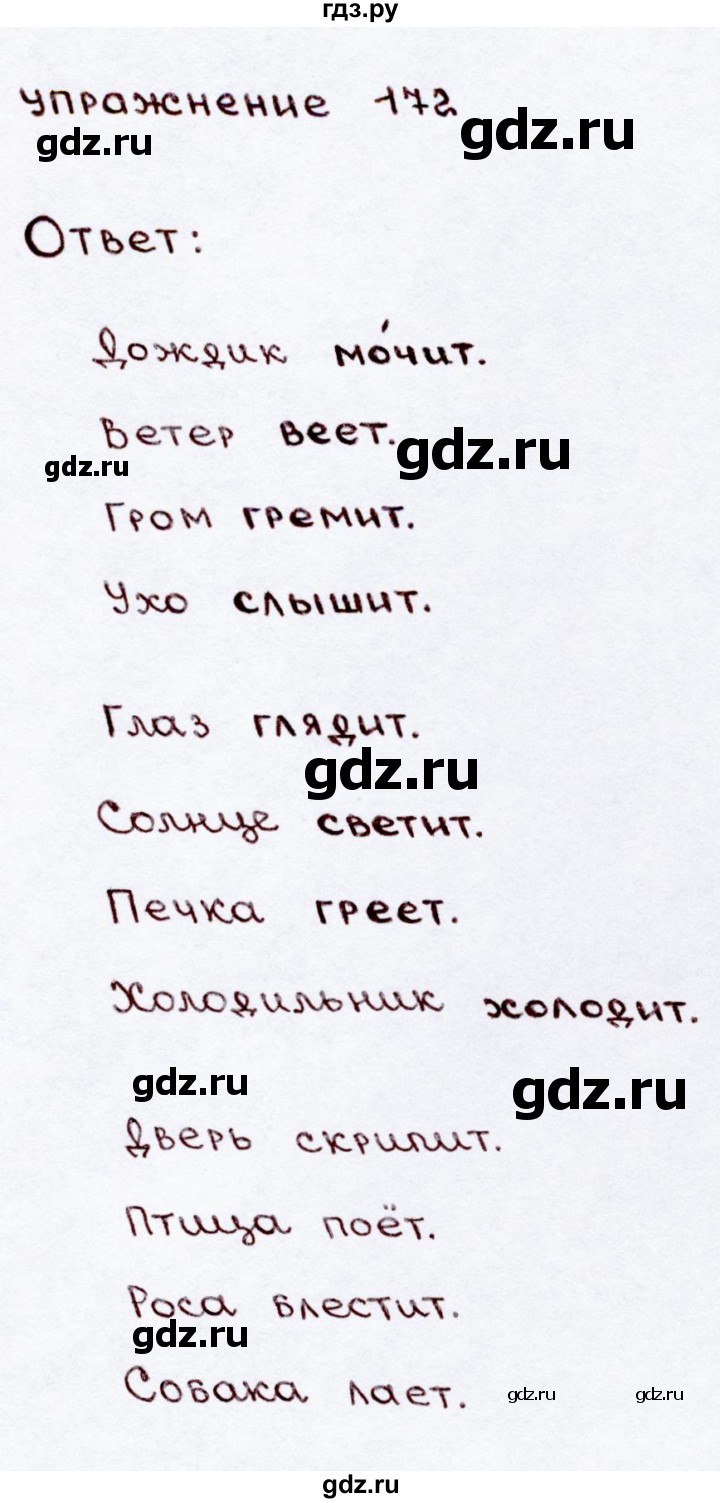 гдз.ру
упражнение 172
gdz.ru
gdz.ru
Ответ:
Дождик мо́чит.
Ветер веет.
gdz.ru
gdz.ru
Гром гремит.
Ухо слышит.
Глаз глядит.
gdz.ru
Солнце светит.
Печка греет.
Холодильник холодит.
gdz.ru
gdz.ru
Дверь скрипит.
Птица поёт.
Роса блестит.
gdz.ru
Собака лает.
gdz.ru
gdz.ru
gdz.ru